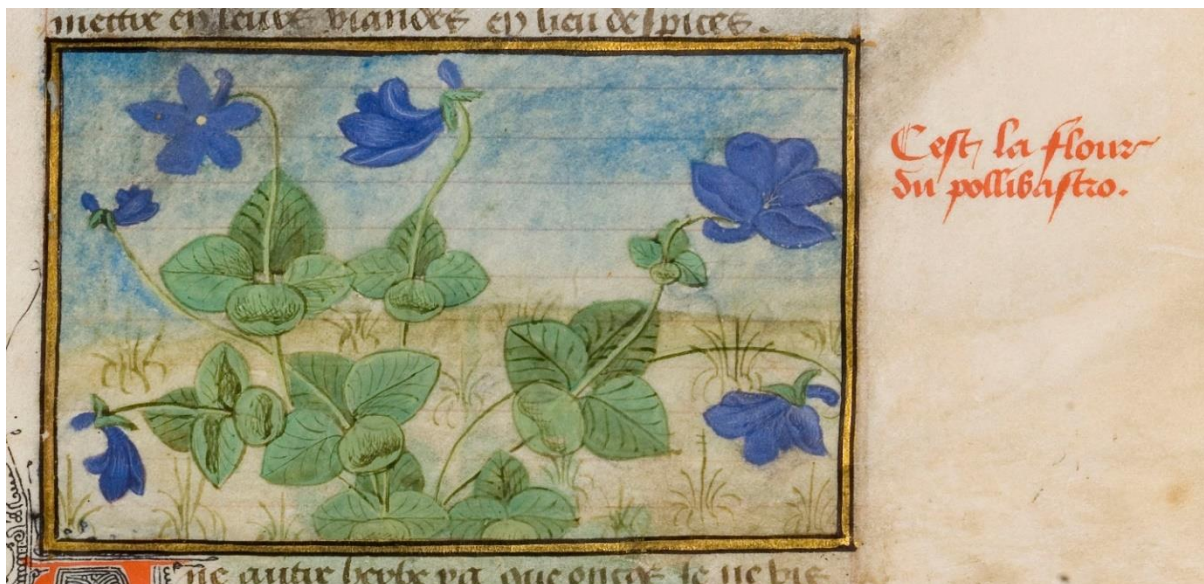 mettre en leurs viandes en lieu despices.
Cest la flour
du pollibastro.
ne autre herbe ya que oncques je ne vis